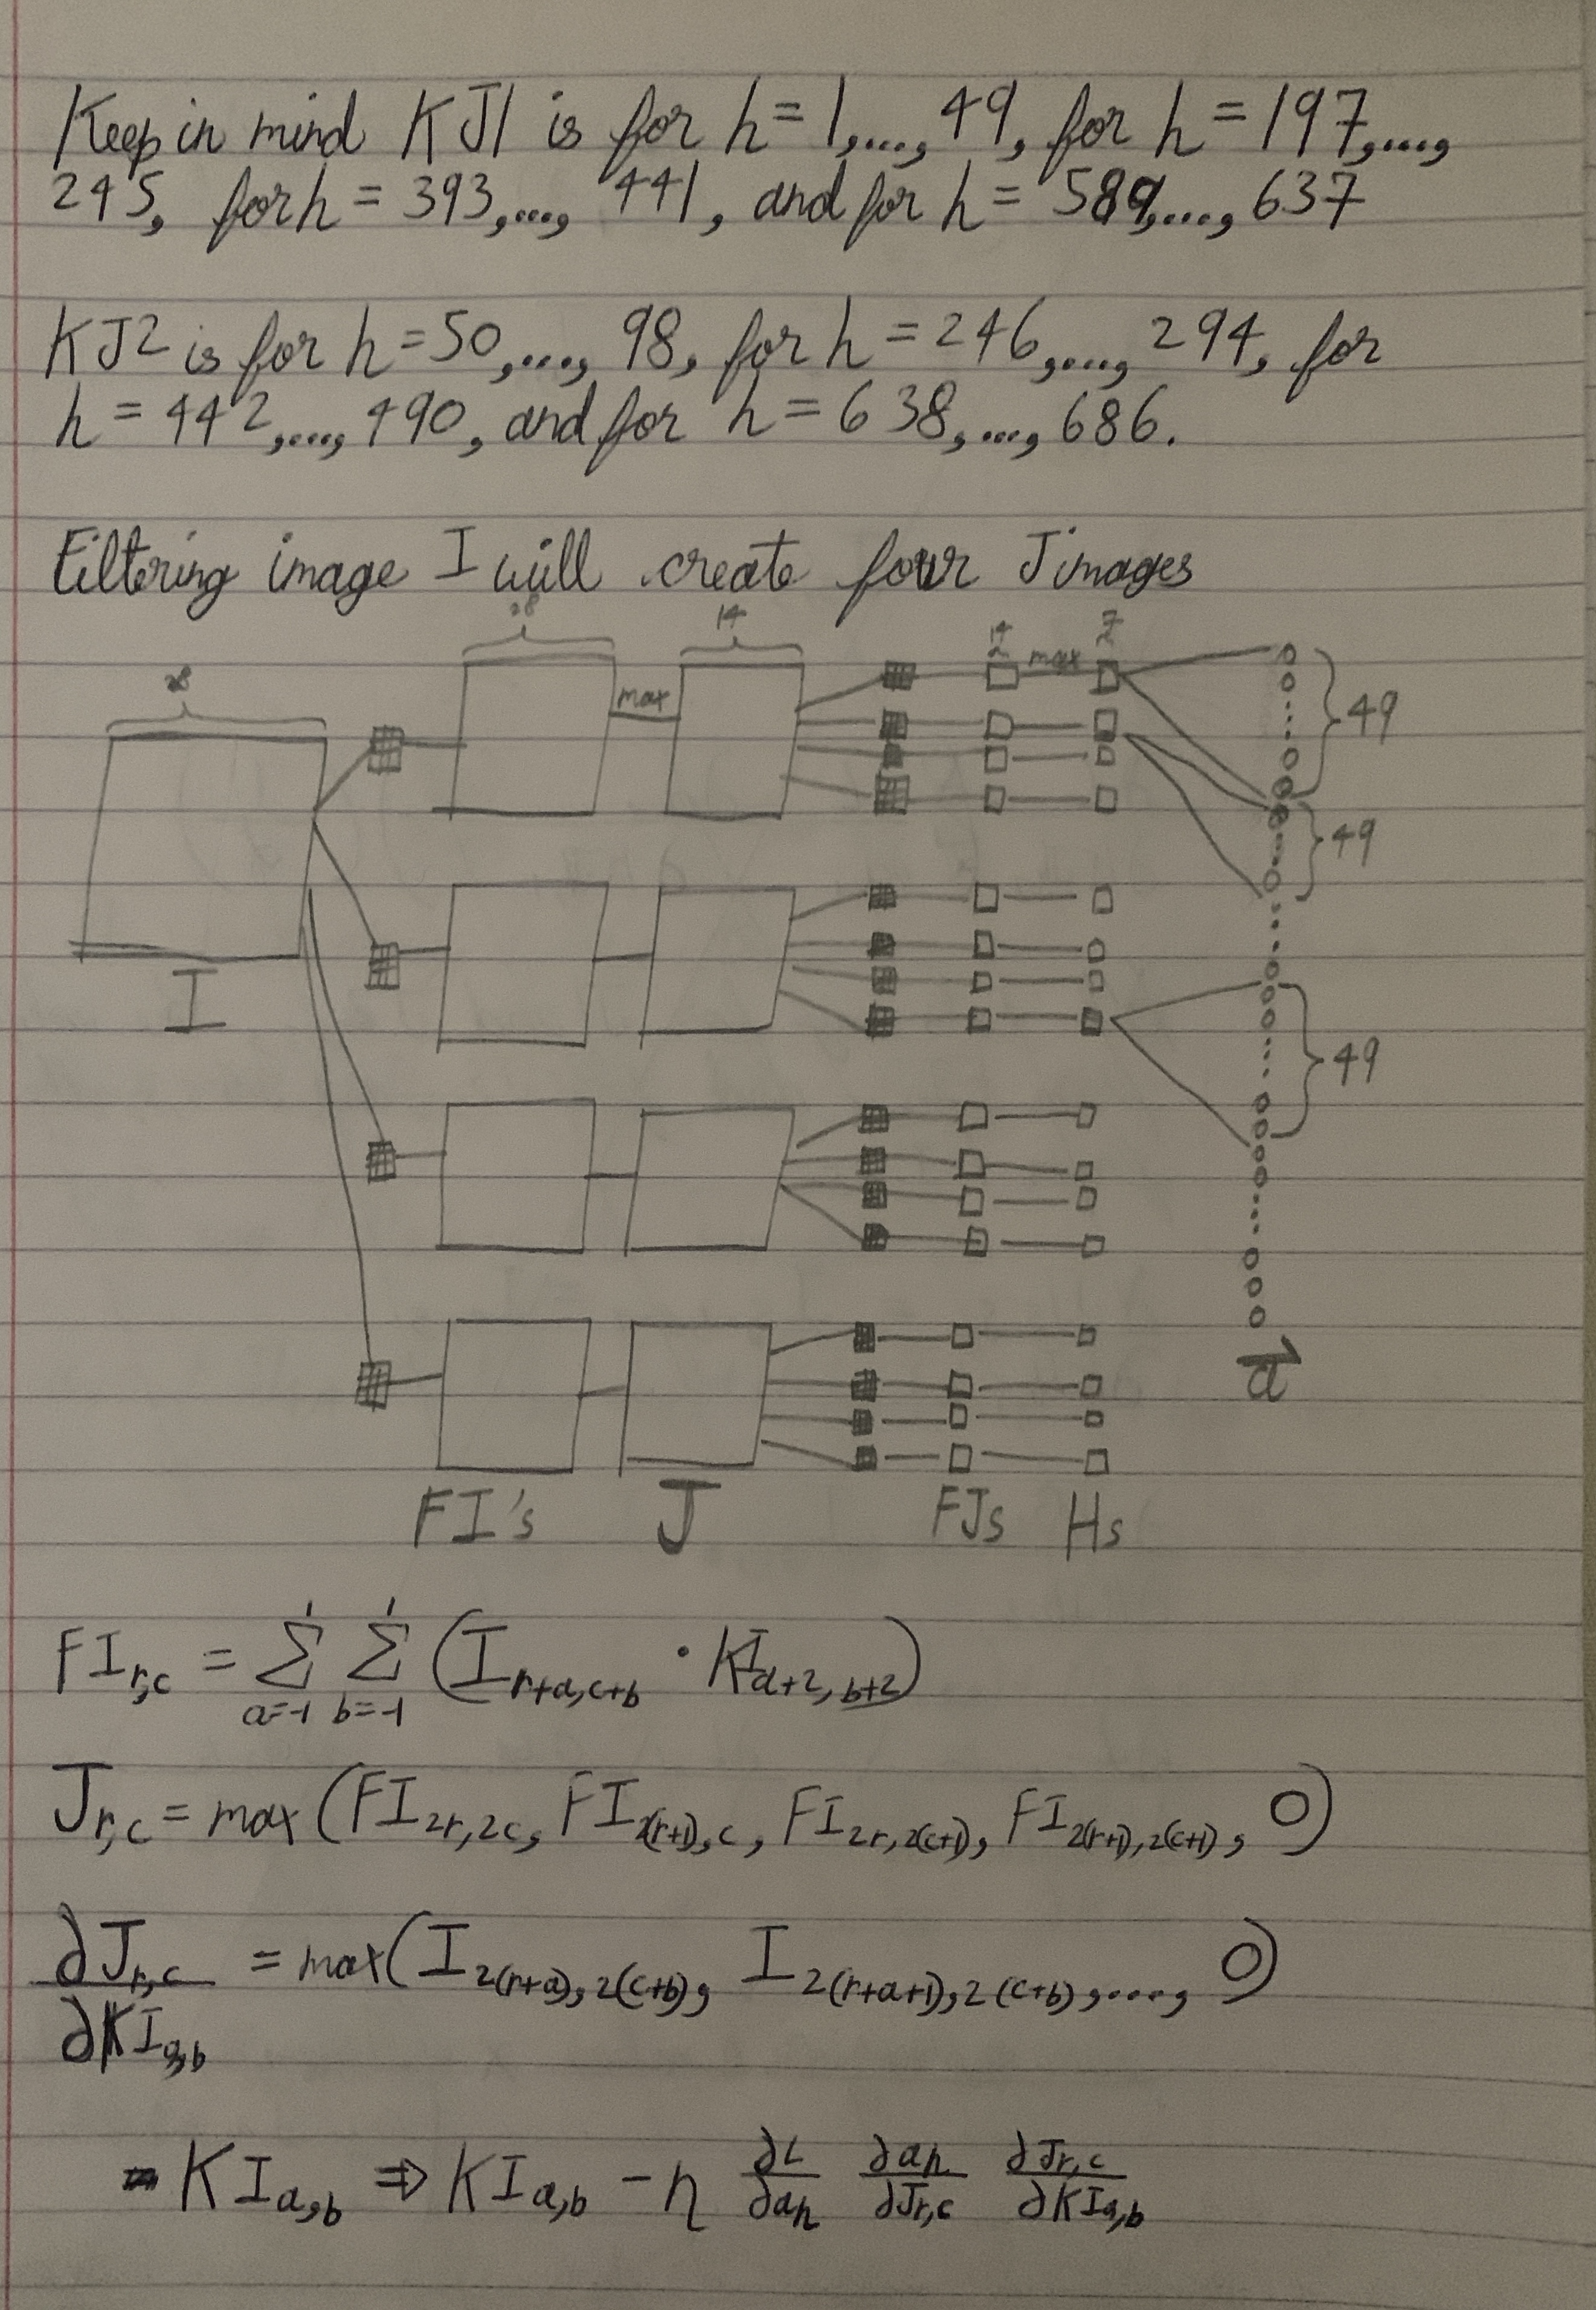 Keep in mind KJ1 is for h=1,..., 49, for h=197,...,
245, for h = 393,..., 441, and for h = 589,..., 637
KJ2 is for h=50,..., 98, for h=246,..., 294, for
h=442,..., 490, and for h=638,...,686.
Filtering image I will create four J images
28 28 14 14 7
max max
49
49
I
49
a⃗
FI's J FJs Hs
FI_{r,c} = \sum_{a=-1}^{1} \sum_{b=-1}^{1} (I_{r+a,c+b} · KI_{a+2,b+2})
J_{r,c} = max(FI_{2r,2c}, FI_{2(r+1),c}, FI_{2r,2(c+1)}, FI_{2(r+1),2(c+1)}, 0)
∂J_{r,c}/∂KI_{a,b} = max(I_{2(r+a),2(c+b)}, I_{2(r+a+1),2(c+b)},..., 0)
KI_{a,b} ⇒ KI_{a,b} - η ∂L/∂a_h ∂a_h/∂J_{r,c} ∂J_{r,c}/∂KI_{a,b}